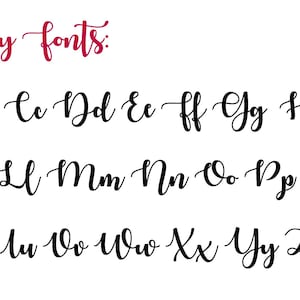 y fonts:
Cc Dd Ee ff Gg H
Ll Mm Nn Oo Pp
Uu Vv Ww Xx Yy